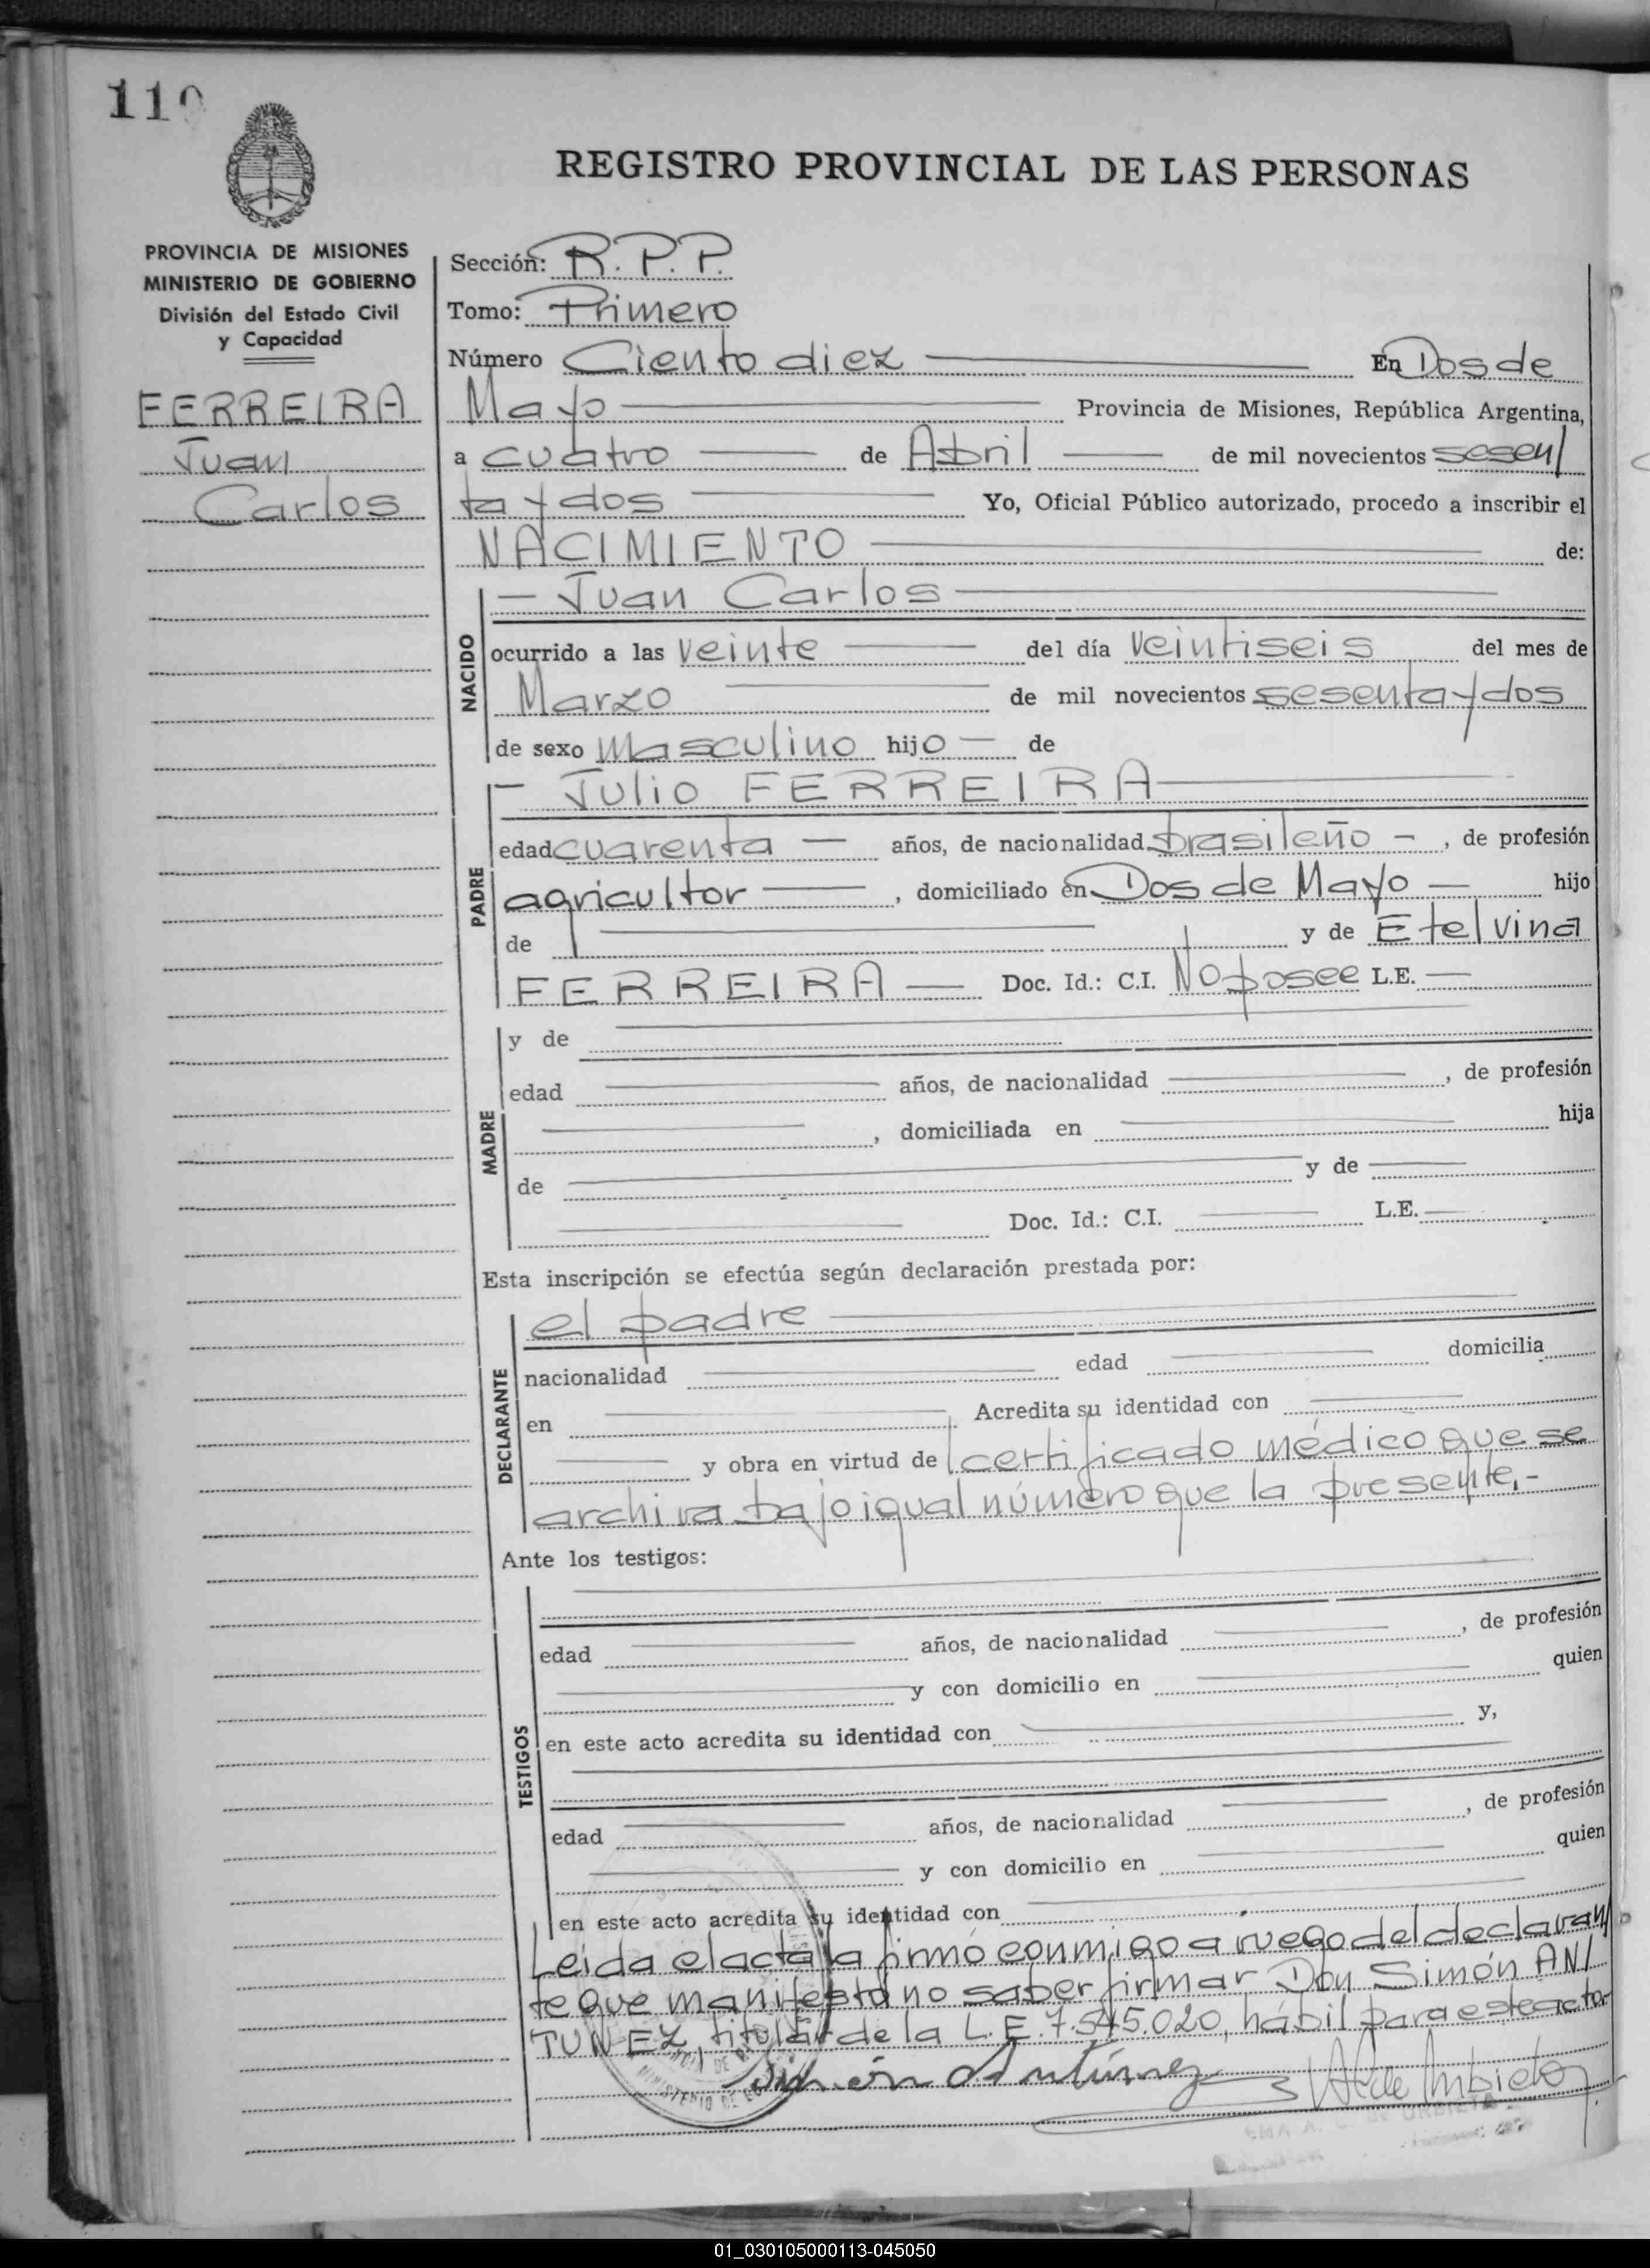 110
REGISTRO PROVINCIAL DE LAS PERSONAS
PROVINCIA DE MISIONES
MINISTERIO DE GOBIERNO
División del Estado Civil
y Capacidad
FERREIRA
Juan
Carlos
Sección: R.P.P.
Tomo: Primero
Número Ciento diez En Dos de
Mayo Provincia de Misiones, República Argentina,
a cuatro de Abril de mil novecientos sesen/
ta y dos Yo, Oficial Público autorizado, procedo a inscribir el
NACIMIENTO de:
NACIDO
— Juan Carlos
ocurrido a las veinte del día veintiseis del mes de
Marzo de mil novecientos sesenta y dos
de sexo masculino hijo — de
PADRE
— Julio FERREIRA
edad cuarenta — años, de nacionalidad brasileño -, de profesión
agricultor, domiciliado en Dos de Mayo — hijo
de y de Etelvina
FERREIRA — Doc. Id.: C.I. No posee L.E. —
MADRE
y de
edad años, de nacionalidad , de profesión
, domiciliada en hija
de y de
Doc. Id.: C.I. L.E.
Esta inscripción se efectúa según declaración prestada por:
DECLARANTE
el padre
nacionalidad edad domicilia
en Acredita su identidad con
y obra en virtud de certificado médico que se
archiva bajo igual número que la presente.-
Ante los testigos:
TESTIGOS
edad años, de nacionalidad , de profesión
y con domicilio en quien
en este acto acredita su identidad con y,
edad años, de nacionalidad , de profesión
y con domicilio en quien
en este acto acredita su identidad con
Leida el acta la firmó conmigo a ruego del declaran/
te que manifestó no saber firmar Don Simón AN/
TUNEZ, titular de la L.E. 7.545.020, hábil para este acto-
Simón Antúnez
01_030105000113-045050